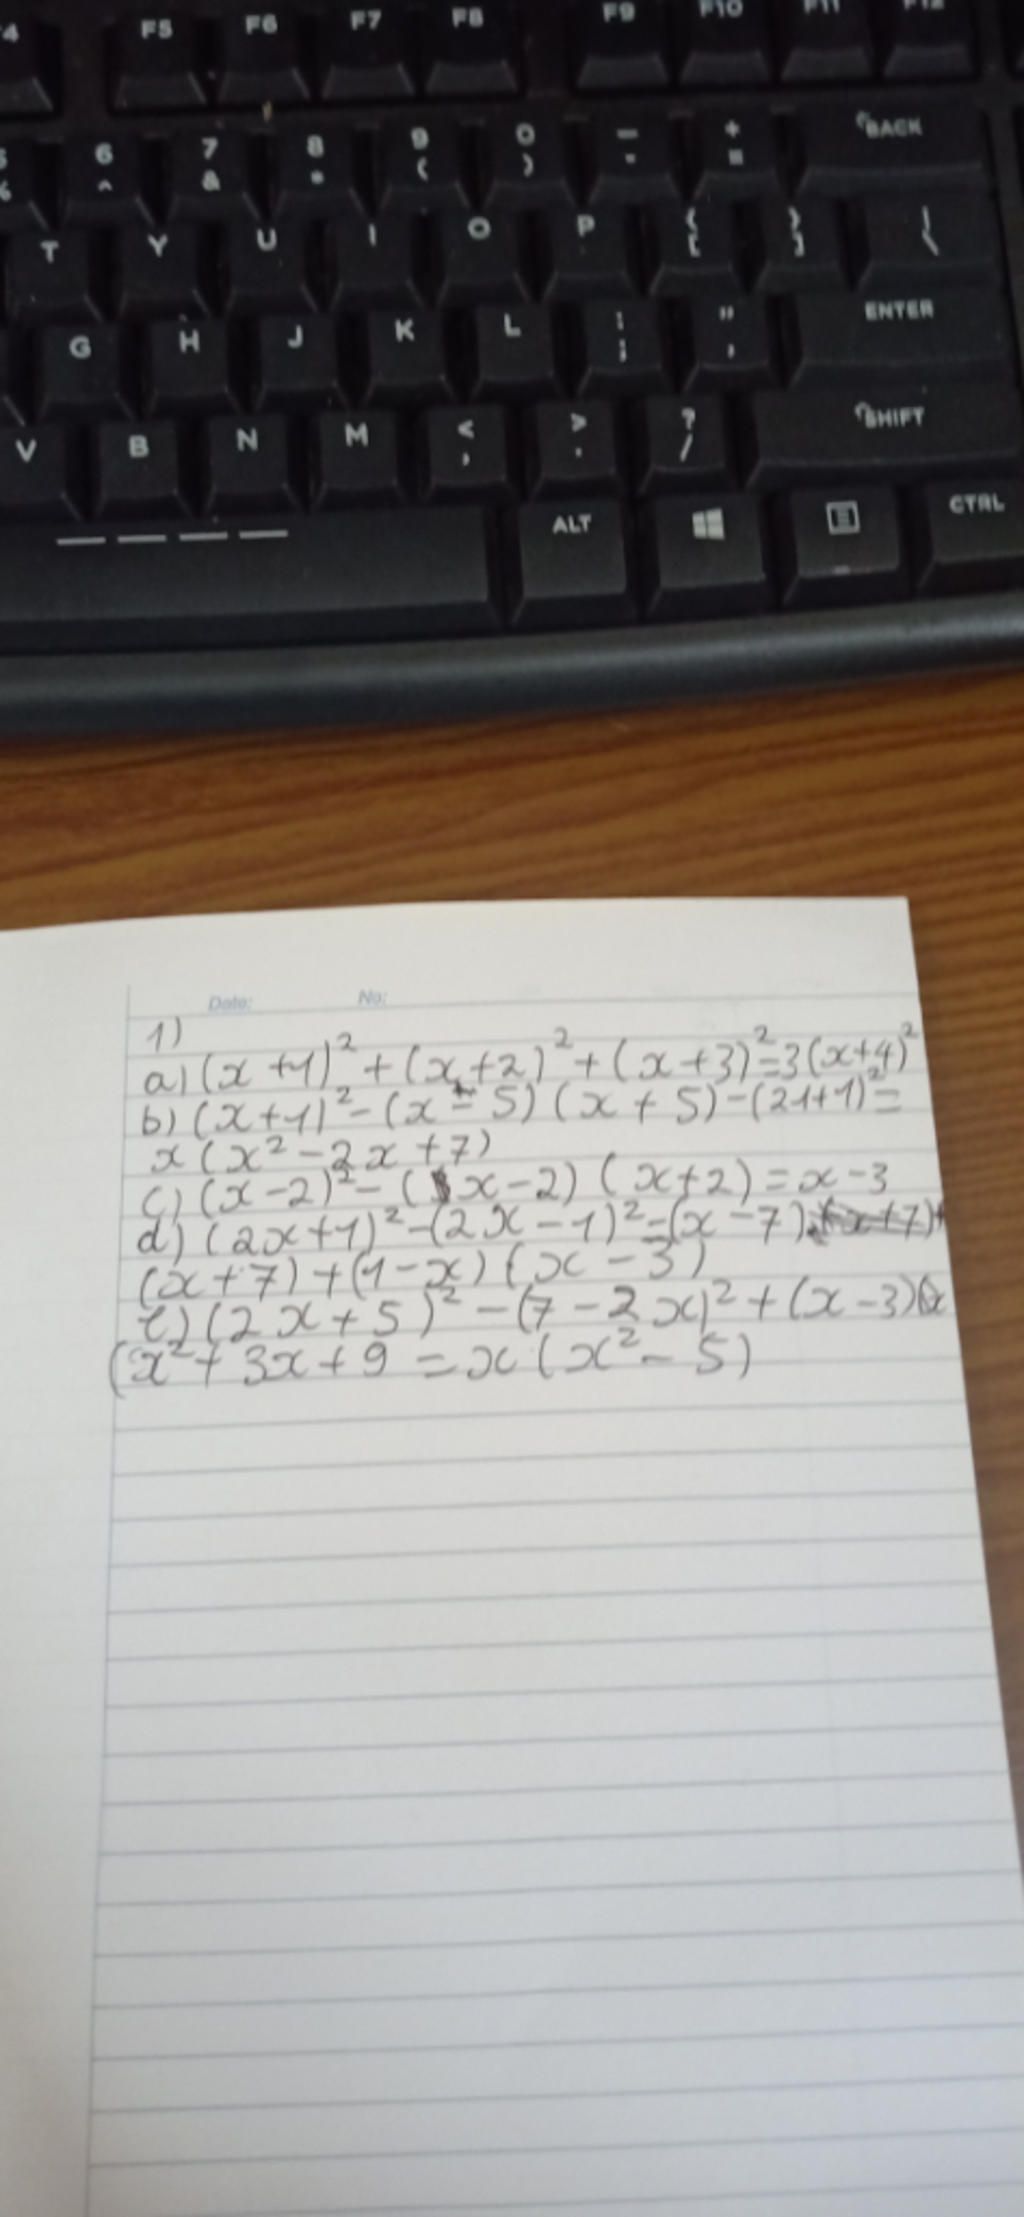 4 F5 F6 F7 F8 F9 F10 F11 F12
6 ^ 7 & 8 * 9 ( 0 ) - + = BACK
T Y U I O P { [ } ] | \
G H J K L : ; " ' ENTER
V B N M < , > . ? / SHIFT
ALT CTRL
Date: No:
1)
a) (x+1)² + (x+2)² + (x+3)² = 3(x+4)²
b) (x+1)² - (x - 5) (x + 5) - (21+1)² =
x (x² - 2x + 7)
c) (x-2)² - (x-2) (x+2) = x-3
d) (2x+1)² - (2x-1)² = (x-7)
(x+7) + (1-x) (x-3)
e) (2x+5)² - (7-2x)² + (x-3)
(x² + 3x + 9 = x (x² - 5)